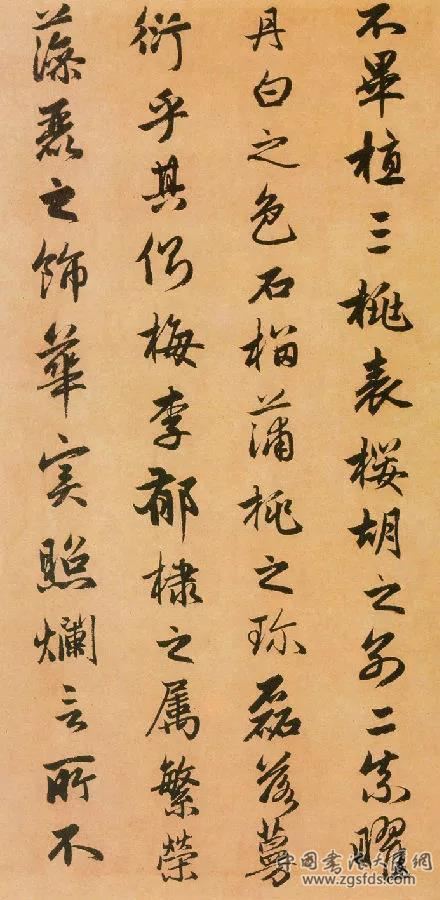 不畢植三桃表櫻胡之別二柰曜
丹白之色石榴蒲桃之珍磊落蔓
衍乎其側梅李郁棣之属繁榮
藻麗之飾華實照爛言所不
中國書法大師網
www.zgsfds.com